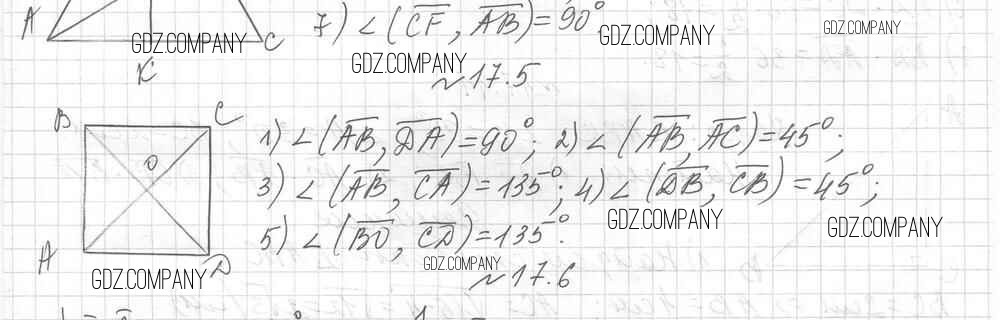 A C 7) ∠(CF, AB)=90°
GDZ.COMPANY GDZ.COMPANY GDZ.COMPANY
K GDZ.COMPANY ~17.5
B C
1) ∠(AB, DA)=90°; 2) ∠(AB, AC)=45°;
O
3) ∠(AB, CA)=135°; 4) ∠(DB, CB)=45°;
GDZ.COMPANY GDZ.COMPANY
5) ∠(BO, CD)=135°.
A D
GDZ.COMPANY GDZ.COMPANY
~17.6